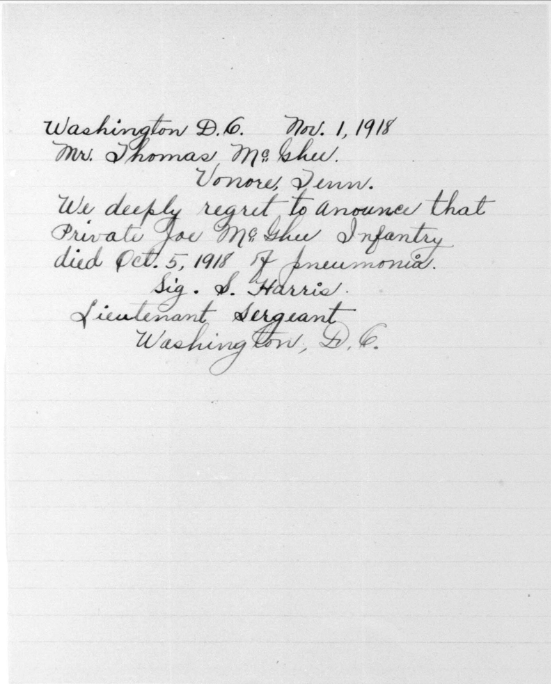 Washington D.C. Nov. 1, 1918
Mr. Thomas McGhee.
Vonore, Tenn.
We deeply regret to anounce that
Private Joe McGhee Infantry
died Oct. 5, 1918 of pneumonia.
Sig. S. Harris.
Lieutenant Sergeant
Washington, D.C.